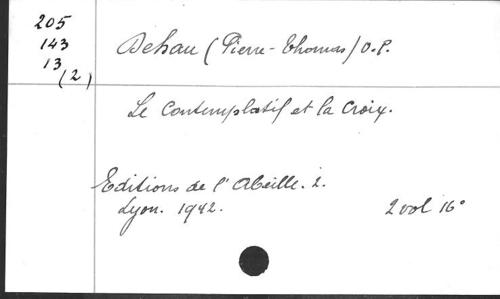 205
143
13
(2)
Dehau (Pierre-Thomas) O.P.
Le Contemplatif et la Croix.
Editions de l'Abeille. 2.
Lyon. 1942.
2 vol 16°